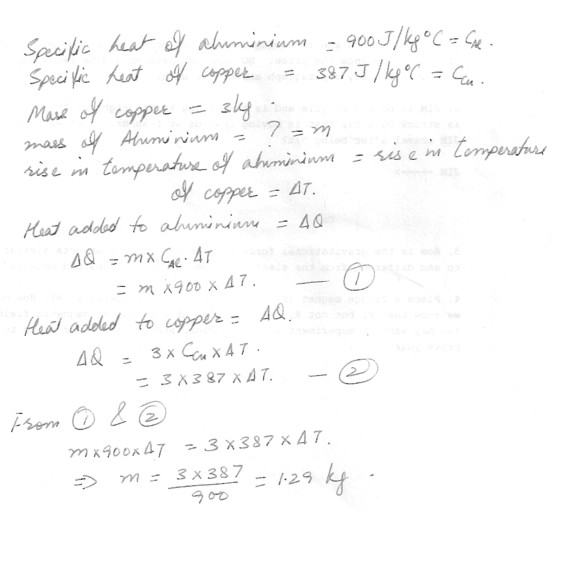 Specific heat of aluminium = 900 J/kg°C = C_Al.
Specific heat of copper = 387 J/kg°C = C_cu.
Mass of copper = 3kg.
mass of Aluminium = ? = m
rise in temperature of aluminium = rise in temperature
of copper = ΔT.
Heat added to aluminium = ΔQ
ΔQ = m x C_Al. ΔT
= m x 900 x ΔT. — ①
Heat added to copper = ΔQ.
ΔQ = 3 x C_cu x ΔT.
= 3 x 387 x ΔT. — ②
From ① & ②
m x 900 x ΔT = 3 x 387 x ΔT.
⇒ m = 3 x 387 / 900 = 1.29 kg.